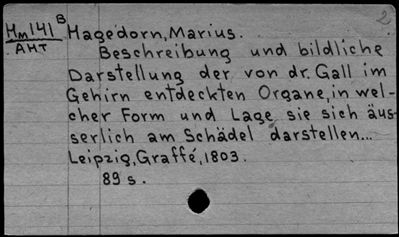 Hm141 B
AHT
2
Hagedorn, Marius.
Beschreibung und bildliche
Darstellung der von dr. Gall im
Gehirn entdeckten Organe, in wel-
cher Form und Lage sie sich äus-
serlich am Schädel darstellen...
Leipzig, Graffé, 1803.
89 s.